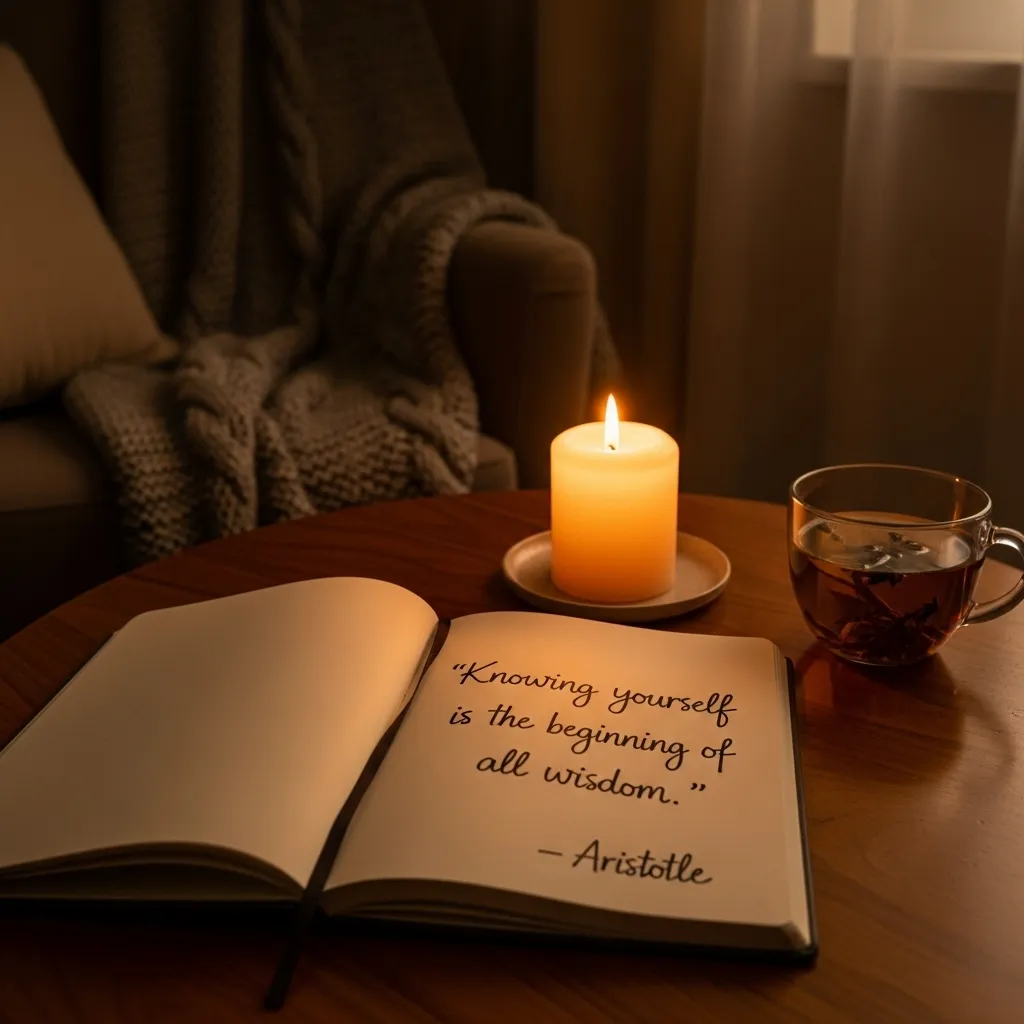 “Knowing yourself
is the beginning of
all wisdom.”
— Aristotle